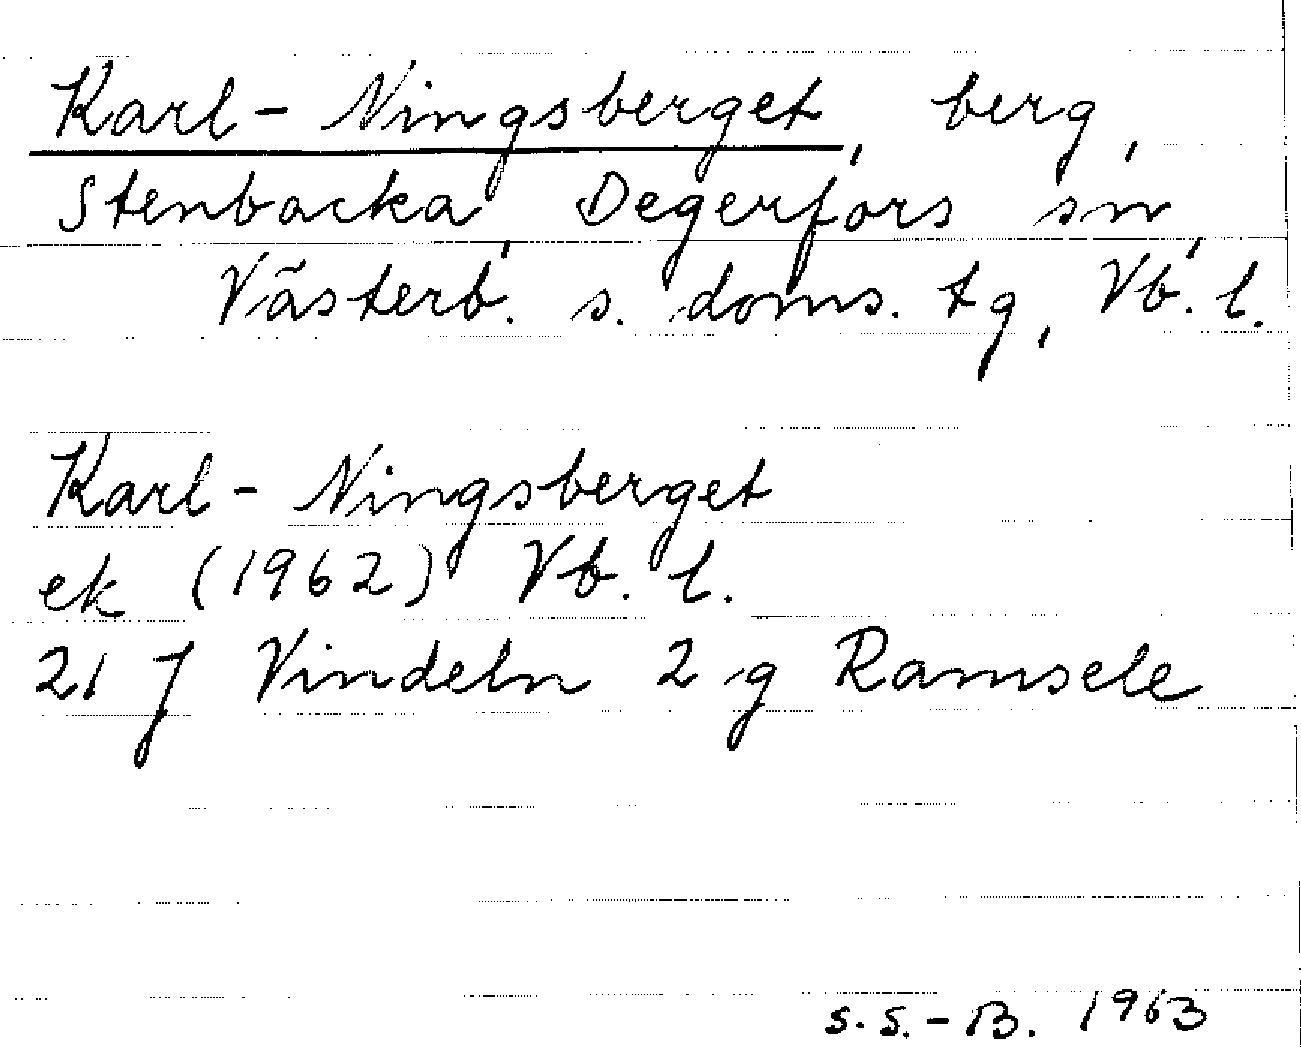 Karl-Ningsberget, berg,
Stenbacka, Degerfors sn,
Västerb. s. doms. tg, Vb. l.
Karl-Ningsberget
ek (1962) Vb. l.
21 J Vindeln 2 g Ramsele
S.S.-B. 1963